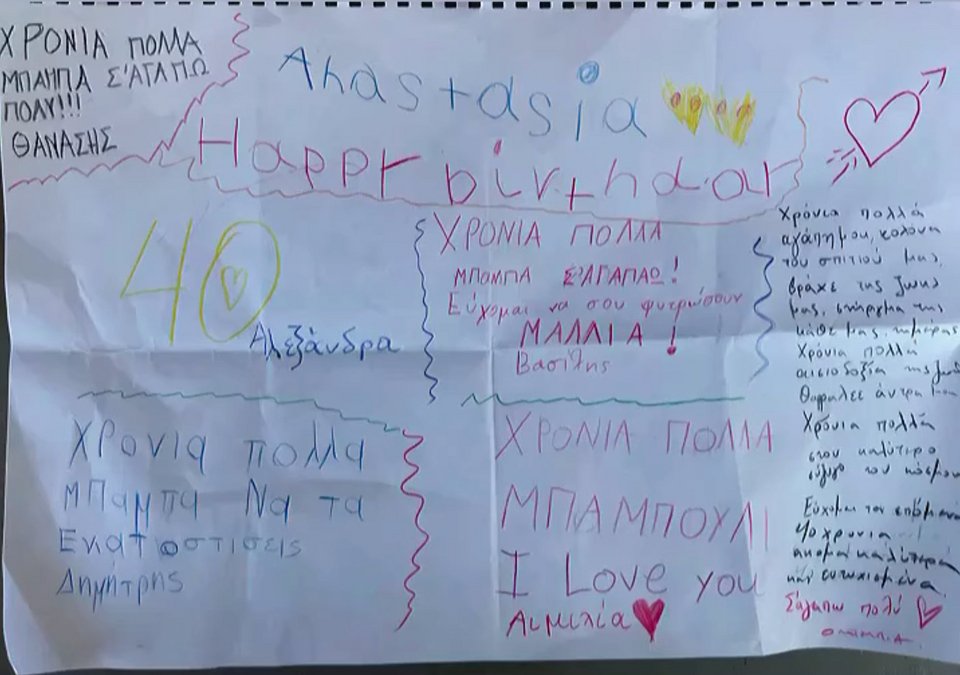 ΧΡΟΝΙΑ ΠΟΛΛΑ
ΜΠΑΜΠΑ Σ'ΑΓΑΠΩ
ΠΟΛΥ!!!
ΘΑΝΑΣΗΣ
Anastasia
Happy birthday
40
Αλεξάνδρα
ΧΡΟΝΙΑ ΠΟΛΛΑ
ΜΠΑΜΠΑ Σ'ΑΓΑΠΑΩ!
Εύχομαι να σου φυτρώσουν
ΜΑΛΛΙΑ!
Βασίλης
Χρόνια πολλά
αγάπη μου, κολόνα
του σπιτιού μας,
βράχε της ζωής
μας, στήριγμα της
κάθε μας ημέρας
Χρόνια πολλά
αισιοδοξία της
Θαρραλέε άντρα μου
Χρόνια πολλά
στον καλύτερο
σύζυγο του κόσμου
Εύχομαι τα επόμενα
40 χρονια
ακομα καλύτερα
και ευτυχισμένα
Σ'αγαπω πολύ
ΟΛΥΜΠΙΑ
Χρονια πολλα
ΜΠαμπα Να τα
Εκατοστισεις
Δημήτρης
ΧΡΟΝΙΑ ΠΟΛΛΑ
ΜΠΑΜΠΟΥΛΙ
I Love you
Αιμιλία